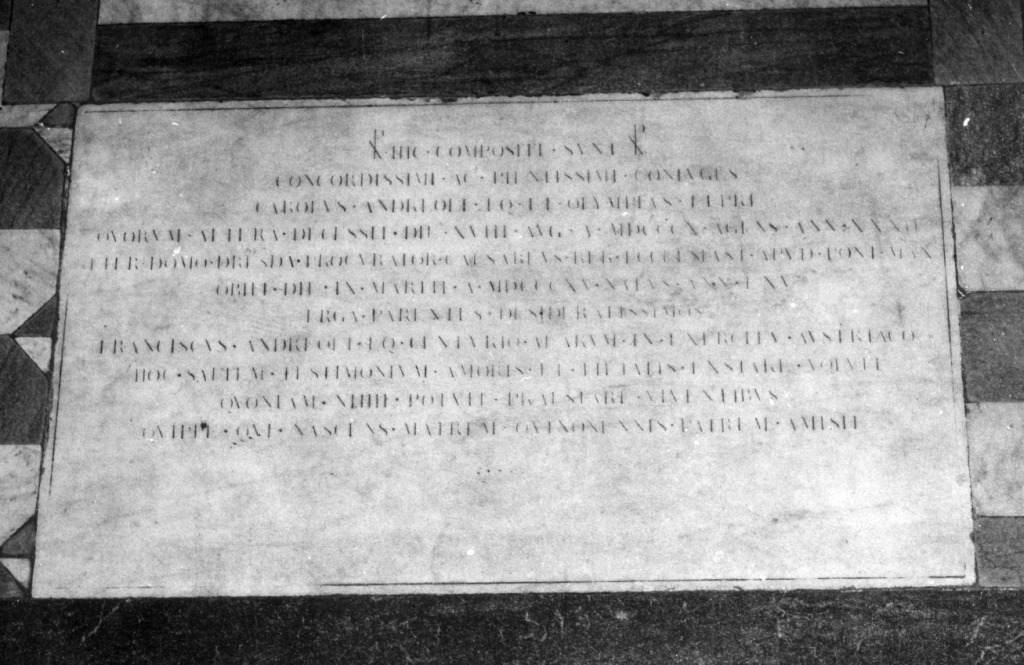 ☧ HIC · COMPOSITI · SVNT ☧
CONCORDISSIMI · AC · PIENTISSIMI · CONIVGES
CAROLVS · ANDREOLI · EQ · ET · OLYMPIAS · LEPRI
QVORVM · ALTERA · DECESSIT · DIE · XVIII · AVG · A · MDCCCX · AGENS ·
ALTER · DOMO · DRESDA · PROCVRATOR · CAESAREVS · RER · ECCLESIAST · APVD · PONT · MAX
OBIIT · DIE · IX · MARTII · A · MDCCCXV · NATVS · ANN · LXV
ERGA · PARENTES · DESIDERATISSIMOS
FRANCISCVS · ANDREOLI · EQ · CENTVRIO · ALARVM · IN · EXERCITV · AVSTRIACO
HOC · SALTEM · TESTIMONIVM · AMORIS · ET · PIETATIS · EXSTARE · VOLVIT
QVONIAM · NIHIL · POTVIT · PRAESTARE · VIVENTIBVS
QVIPPE · QVI · NASCENS · MATREM · QVINQVENNIS · PATREM · AMISIT